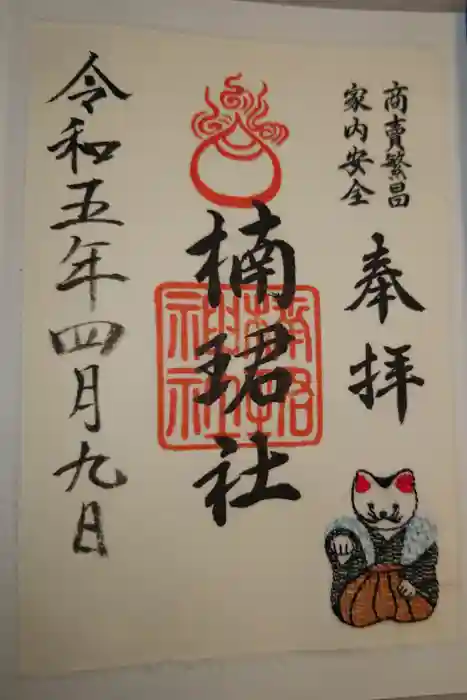 商賣繁昌
家内安全
奉拝
楠珺社
令和五年四月九日